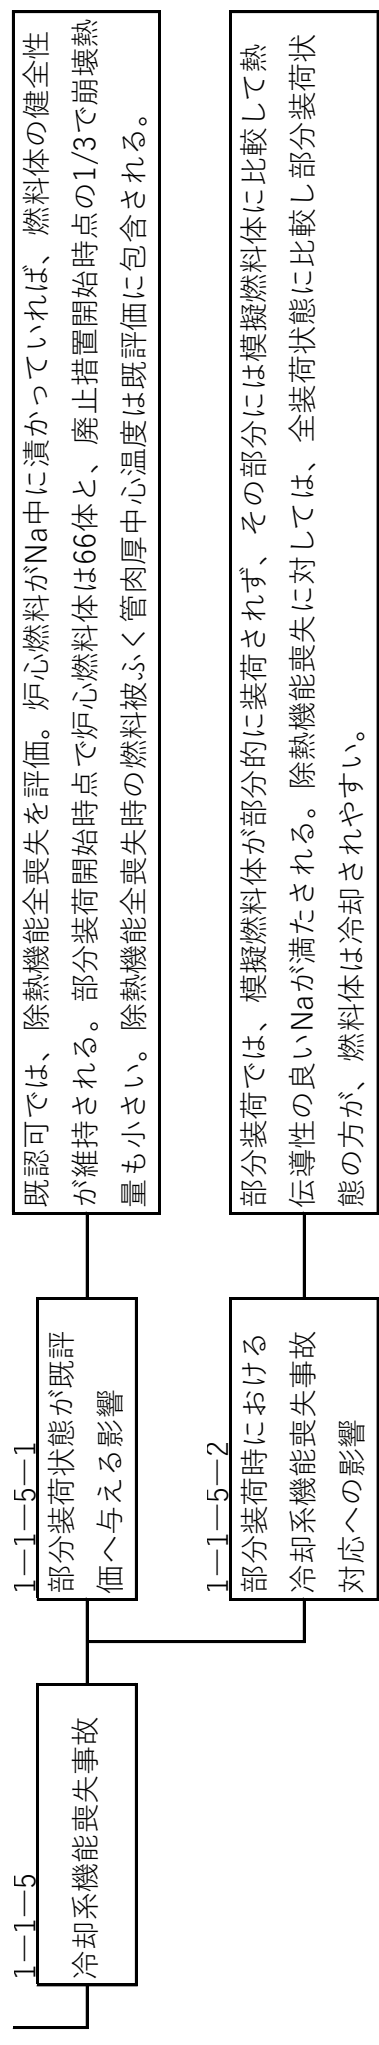 1－1－5
冷却系機能喪失事故
1－1－5－1
部分装荷状態が既評
価へ与える影響
既認可では、除熱機能全喪失を評価。炉心燃料がNa中に漬かっていれば、燃料体の健全性
が維持される。部分装荷開始時点で炉心燃料体は66体と、廃止措置開始時点の1/3で崩壊熱
量も小さい。除熱機能全喪失時の燃料被ふく管肉厚中心温度は既評価に包含される。
1－1－5－2
部分装荷時における
冷却系機能喪失事故
対応への影響
部分装荷では、模擬燃料体が部分的に装荷されず、その部分には模擬燃料体に比較して熱
伝導性の良いNaが満たされる。除熱機能喪失に対しては、全装荷状態に比較し部分装荷状
態の方が、燃料体は冷却されやすい。